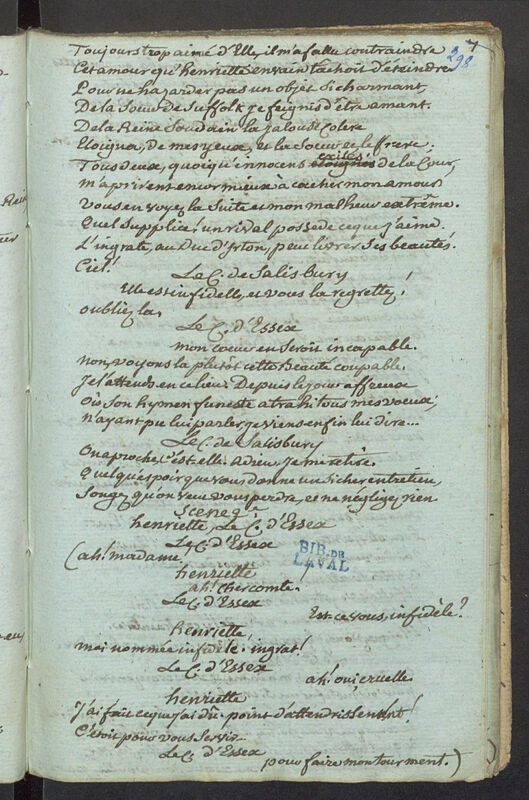 7
298
Toujours trop aimé d'Elle, il m'a fallu contraindre
Cet amour qu'henriette en vain tachoit d'éteindre
Pour ne hazarder pas un objet si charmant,
De la Soeur de Suffolk je feignis d'être amant.
De la Reine Soudain la jalouse Colere
Eloigna, de mes yeux, et la Soeur et le frere;
Tous deux, quoiqu'innocens exilés de la Cour,
m'aprirent encor mieux à cacher mon amour
Vous en voyez la Suite et mon malheur extrême.
Quel Supplice! un rival possede ce que j'aime.
L'ingrate, au Duc d'Irton, peut livrer Ses beautés!
Ciel!
Le C. de Salisbury
Elle est infidelle, et vous la regrettez!
oubliez la.
Le C. d'Essex
mon coeur en Seroit incapable.
Non, voyons la plutôt cette Beauté coupable.
Je l'attends en ce lieu. Depuis le jour affreux
Où Son hymen funeste a trahi tous mes voeux;
n'ayant pu lui parler, je viens enfin lui dire...
Le C. de Salisbury
On aproche, C'est elle. Adieu, Je me retire.
Quelqu'espoir que vous donne un Si cher entretien,
Songez qu'on veut vous perdre, et ne negligez rien
Scene 2e
henriette, Le C. d'Essex
Le C. d'Essex
(ah! madame.
henriette
ah! Cher comte.
Le C. d'Essex
Est-ce vous, infidèle?
henriette,
moi nommée infidéle! ingrat!
Le C. d'Essex
ah! oui, cruelle.
henriette
J'ai fait ce que j'ai dû. point d'attendrissement!
C'étoit pour vous Servir.
Le C. d'Essex
pour faire mon tourment.)
BIB. DE
LAVAL